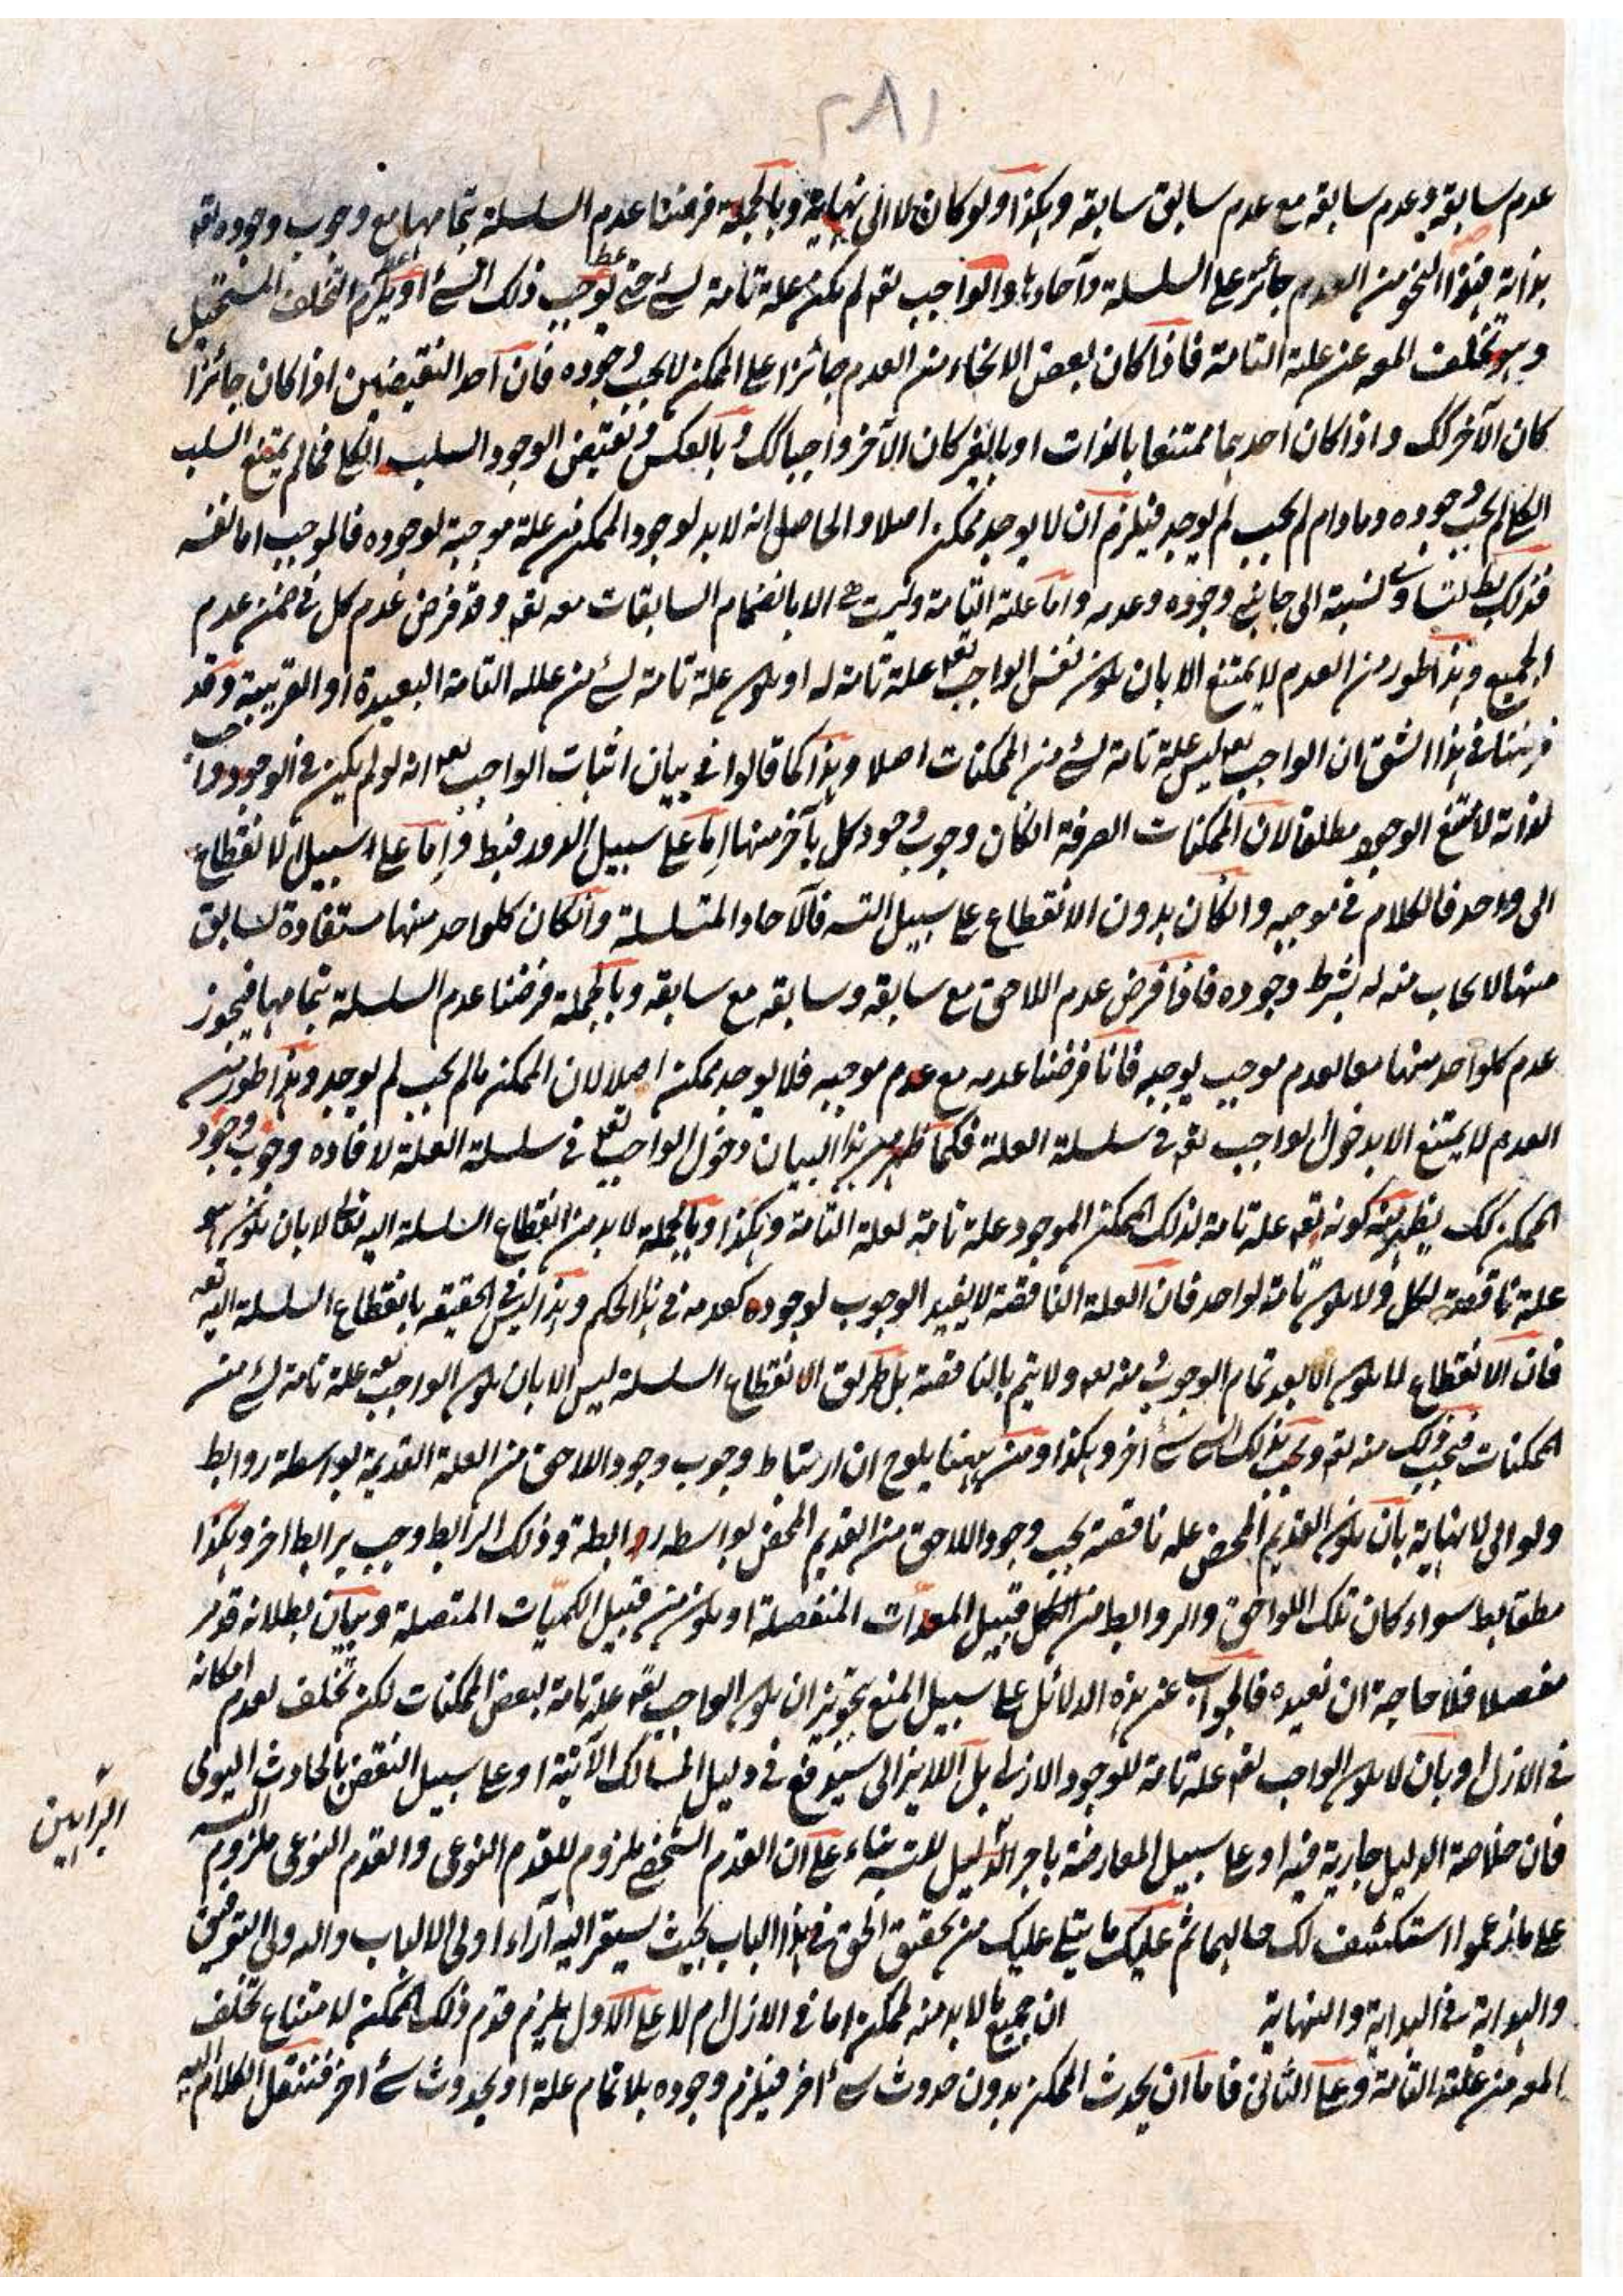 ٢٨١
عدم سابقه وعدم سابقه مع عدم سابق سابقه وهكذا ولو كان لا الى نهاية وبالجملة فرضنا عدم السلسلة بتمامها مع وجوب وجوده تعه
بذاته فهذا النحو من العدم جائز على السلسلة وآحادها والواجب تعه لم يكن علة تامة لشئ حتى يوجب ذلك الشئ او يلزم التخلف المستحيل
وهو تخلف المعه عن علة التامة فاذا كان بعض الانحاء من العدم جائزا على الممكن لا يجب وجوده فان احد النقيضين اذا كان جائزا
كان الآخر كك واذا كان احدهما ممتنعا بالذات او بالغير كان الآخر واجبا كك وبالعكس ونقيض الوجود السلب الكلي فما لم يمتنع السلب
الكلي لم يجب وجوده وما دام لم يجب لم يوجد فيلزم ان لا يوجد ممكن اصلا والحاصل انه لا بد لوجود الممكن من علة موجبة لوجوده فالموجب اما نفسه
فذلك بط لتساوي نسبته الى جانبي وجوده وعدمه واما علة التامة وليست هي الا بانضمام السابقات معه تعه وقد فرض عدم كل في ضمن عدم
الجميع وهذا طور من العدم لا يمتنع الا بان يكون نفس الواجب تعه علة تامة له او يكون علة تامة لشئ من علله التامة البعيدة او القريبة وقد
فرضنا في هذا الشق ان الواجب تعه ليس علة تامة لشئ من الممكنات اصلا وهذا كما قالوا في بيان اثبات الواجب تعه انه لو لم يكن في الوجود واجب
لذاته لامتنع الوجود مطلقا لان الممكنات الصرفة ان كان وجوب وجود كل بآخر منها اما على سبيل الدور فبط واما على سبيل الانقطاع
الى واحد فالكلام في موجبه وان كان بدون الانقطاع على سبيل التسه فالآحاد المتسلسلة وان كان كلواحد منها مستفادة لسابق
منها الايجاب منه له بشرط وجوده فاذا فرض عدم اللاحق مع سابقه وسابقه مع سابقه وبالجملة فرضنا عدم السلسلة بتمامها فيجوز
عدم كلواحد منها معا لعدم موجب يوجبه فانا فرضنا عدمه مع عدم موجبه فلا يوجد ممكن اصلا لان الممكن ما لم يجب لم يوجد وهذا طور من
العدم لا يمتنع الا بدخول الواجب تعه في سلسلة العلة فكما ظهر من هذا البيان دخول الواجب تعه في سلسلة العلة لافاده وجوب وجود
الممكن كك يظهر منه كونه تعه علة تامة لذلك الممكن الموجود علة تامة لعلة التامة وهكذا وبالجملة لا بد من انقطاع السلسلة اليه تعالى لا بان يكون هو
علة ناقصة لكل ولا يكون تامة لواحد فان العلة الناقصة لا يفيد الوجوب لوجوده كعدمه في هذا الحكم وهذا ليس في الحقيقه بانقطاع السلسلة اليه تعه
فان الانقطاع لا يكون الا بعد تمام الوجوب منه تعه ولا يتم بالناقصة بل طريق الانقطاع السلسلة ليس الا بان يكون الواجب تعه علة تامة لشئ من
الممكنات فيجب ذلك منه تعه ويجب بذلك الشئ شئ آخر وهكذا ومن ههنا يلوح ان ارتباط وجوب وجود اللاحق من العلة القديمة بواسطة روابط
ولو الى لا نهاية بان يكون القديم المحض علة ناقصة يجب وجود اللاحق من القديم المحض بواسطه رابطة وذلك الرابط وجب برابط اخر وهكذا
مطلقا بط سواء كان تلك اللواحق والروابط من قبيل المعدات المنفصلة او يكون من قبيل الكميات المتصلة وبيان بطلانه قد مر
مفصلا فلا حاجة ان نعيده فالجواب عن هذه الدلائل على سبيل المنع بتجويز ان يكون الواجب تعه علة تامة لبعض الممكنات لكن تخلف لعدم امكانه
في الازل او بان لا يكون الواجب تعه علة تامة للوجود الازلي بل اللايزالي سيرفع في دليل المسالك الآتية او على سبيل النقض بالحادث اليومي
فان خلاصة الدليل جارية فيه او على سبيل المعارضة باجراء الدليل للتسه بناء على ان القدم الشخصي ملزوم للقدم النوعي والقدم النوعي ملزوم التسه
البراهين
على ما زعموا استكشف لك حالهما ثم عليك ما يتلى عليك من تحقيق الحق في هذا الباب بحيث يستقر اليه آراء اولى الالباب والله ولى التوفيق
والهداية في البداية والنهاية ان جميع ما لا بد منه لممكن اما في الازل ام لا على الاول يلزم قدم ذلك الممكن لامتناع تخلف
المعه من علة التامة وعلى الثاني فاما ان يحدث الممكن بدون حدوث شئ آخر فيلزم وجوده بلا تمام علة او بحدوث شئ اخر فننتقل الكلام اليه